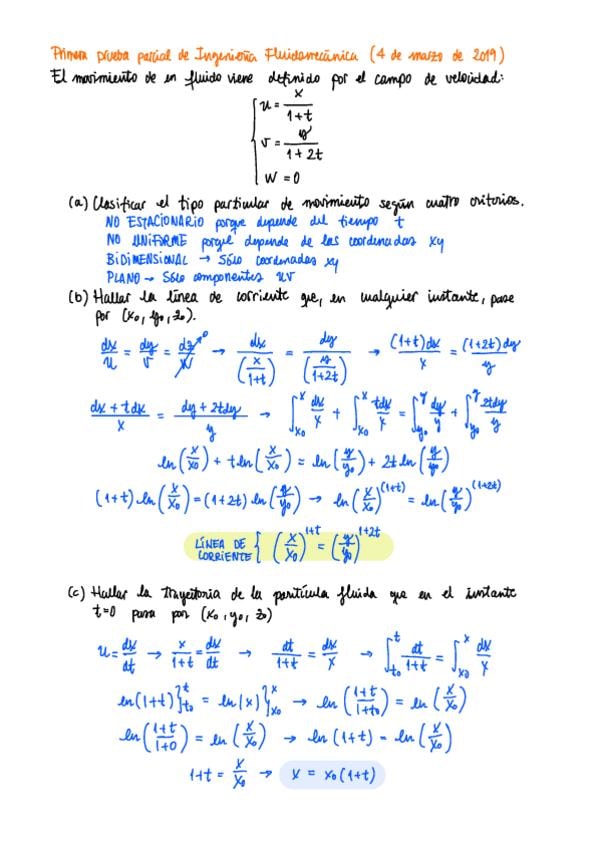 Primera prueba parcial de Ingeniería Fluidomecánica (4 de marzo de 2019)
El movimiento de un fluido viene definido por el campo de velocidad:
{ u = x/(1+t)
v = y/(1+2t)
W = 0
(a) Clasificar el tipo particular de movimiento según cuatro criterios.
NO ESTACIONARIO porque depende del tiempo t
NO UNIFORME porque depende de las coordenadas xy
BIDIMENSIONAL → Sólo coordenadas xy
PLANO → Sólo componentes uv
(b) Hallar la línea de corriente que, en cualquier instante, pase
por (x₀, y₀, z₀).
dx/u = dy/v = dz/W → 0 → dx/(x/(1+t)) = dy/(y/(1+2t)) → (1+t)dx/x = (1+2t)dy/y
(dx + tdx)/x = (dy + 2tdy)/y → ∫_{x₀}^{x} dx/x + ∫_{x₀}^{x} tdx/x = ∫_{y₀}^{y} dy/y + ∫_{y₀}^{y} 2tdy/y
ln(x/x₀) + t ln(x/x₀) = ln(y/y₀) + 2t ln(y/y₀)
(1+t) ln(x/x₀) = (1+2t) ln(y/y₀) → ln(x/x₀)^(1+t) = ln(y/y₀)^(1+2t)
LÍNEA DE CORRIENTE { (x/x₀)^1+t = (y/y₀)^1+2t
(c) Hallar la trayectoria de la partícula fluida que en el instante
t=0 pasa por (x₀, y₀, z₀)
u = dx/dt → x/(1+t) = dx/dt → dt/(1+t) = dx/x → ∫_{t₀}^{t} dt/(1+t) = ∫_{x₀}^{x} dx/x
ln(1+t)}_{t₀}^{t} = ln|x|}_{x₀}^{x} → ln((1+t)/(1+t₀)) = ln(x/x₀)
ln((1+t)/(1+0)) = ln(x/x₀) → ln(1+t) = ln(x/x₀)
1+t = x/x₀ → x = x₀(1+t)